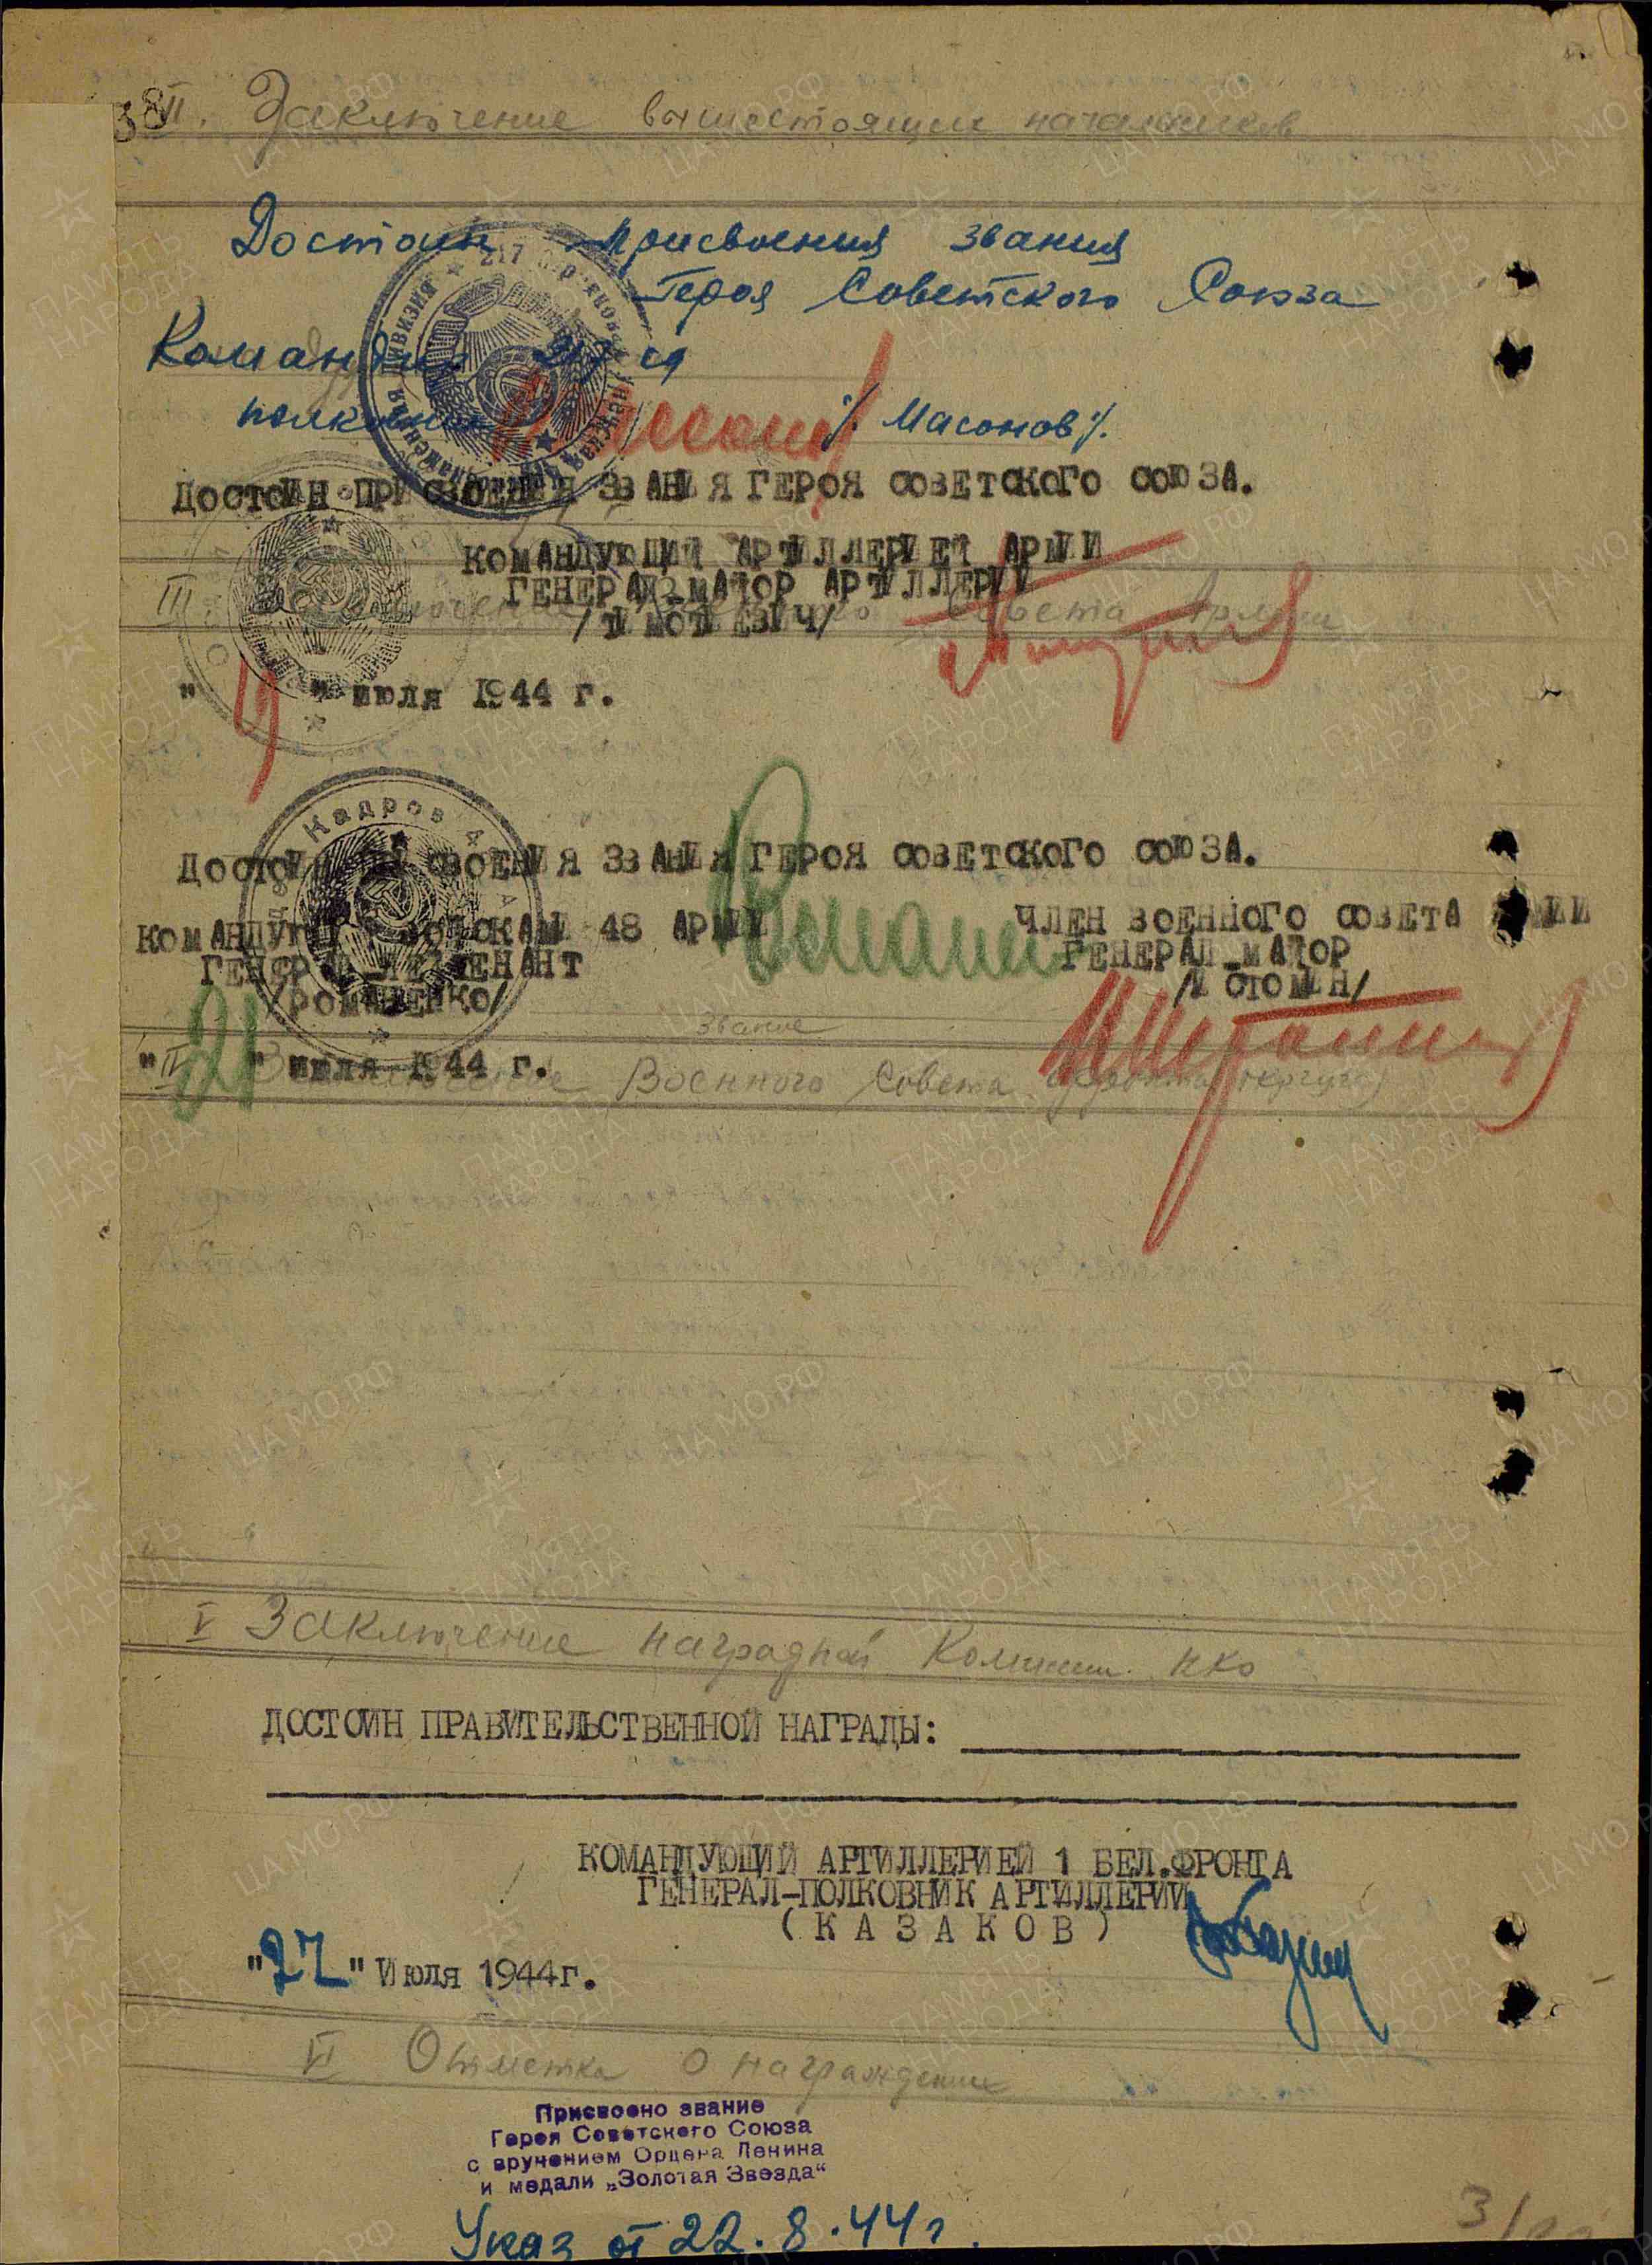 38
II. Заключение вышестоящих начальников
Достоин присвоения звания
Героя Советского Союза
Командир 217 сд
полковник /. Масонов /.
ДОСТОИН ПРИСВОЕНИЯ ЗВАНИЯ ГЕРОЯ СОВЕТСКОГО СОЮЗА.
КОМАНДУЮЩИЙ АРТИЛЛЕРИЕЙ АРМИИ
ГЕНЕРАЛ-МАЙОР АРТИЛЛЕРИИ
/ТИМОТИЕВИЧ/
III. Заключение Военного Совета Армии
"19" июля 1944 г.
Кадров 4
ДОСТОИН ПРИСВОЕНИЯ ЗВАНИЯ ГЕРОЯ СОВЕТСКОГО СОЮЗА.
КОМАНДУЮЩИЙ ВОЙСКАМИ 48 АРМИИ ЧЛЕН ВОЕННОГО СОВЕТА АРМИИ
ГЕНЕРАЛ-ЛЕЙТЕНАНТ ГЕНЕРАЛ-МАЙОР
/РОМАНЕНКО/ /ИСТОМИН/
звание
"21" июля 1944 г.
IV Заключение Военного Совета (фронта округа)
V Заключение наградной Комиссии НКО
ДОСТОИН ПРАВИТЕЛЬСТВЕННОЙ НАГРАДЫ:
КОМАНДУЮЩИЙ АРТИЛЛЕРИЕЙ 1 БЕЛ.ФРОНТА
ГЕНЕРАЛ-ПОЛКОВНИК АРТИЛЛЕРИИ
(КАЗАКОВ)
"27" Июля 1944г.
VI Отметка о награждении
Присвоено звание
Героя Советского Союза
с вручением Ордена Ленина
и медали „Золотая Звезда“
Указ от 22.8.44г.